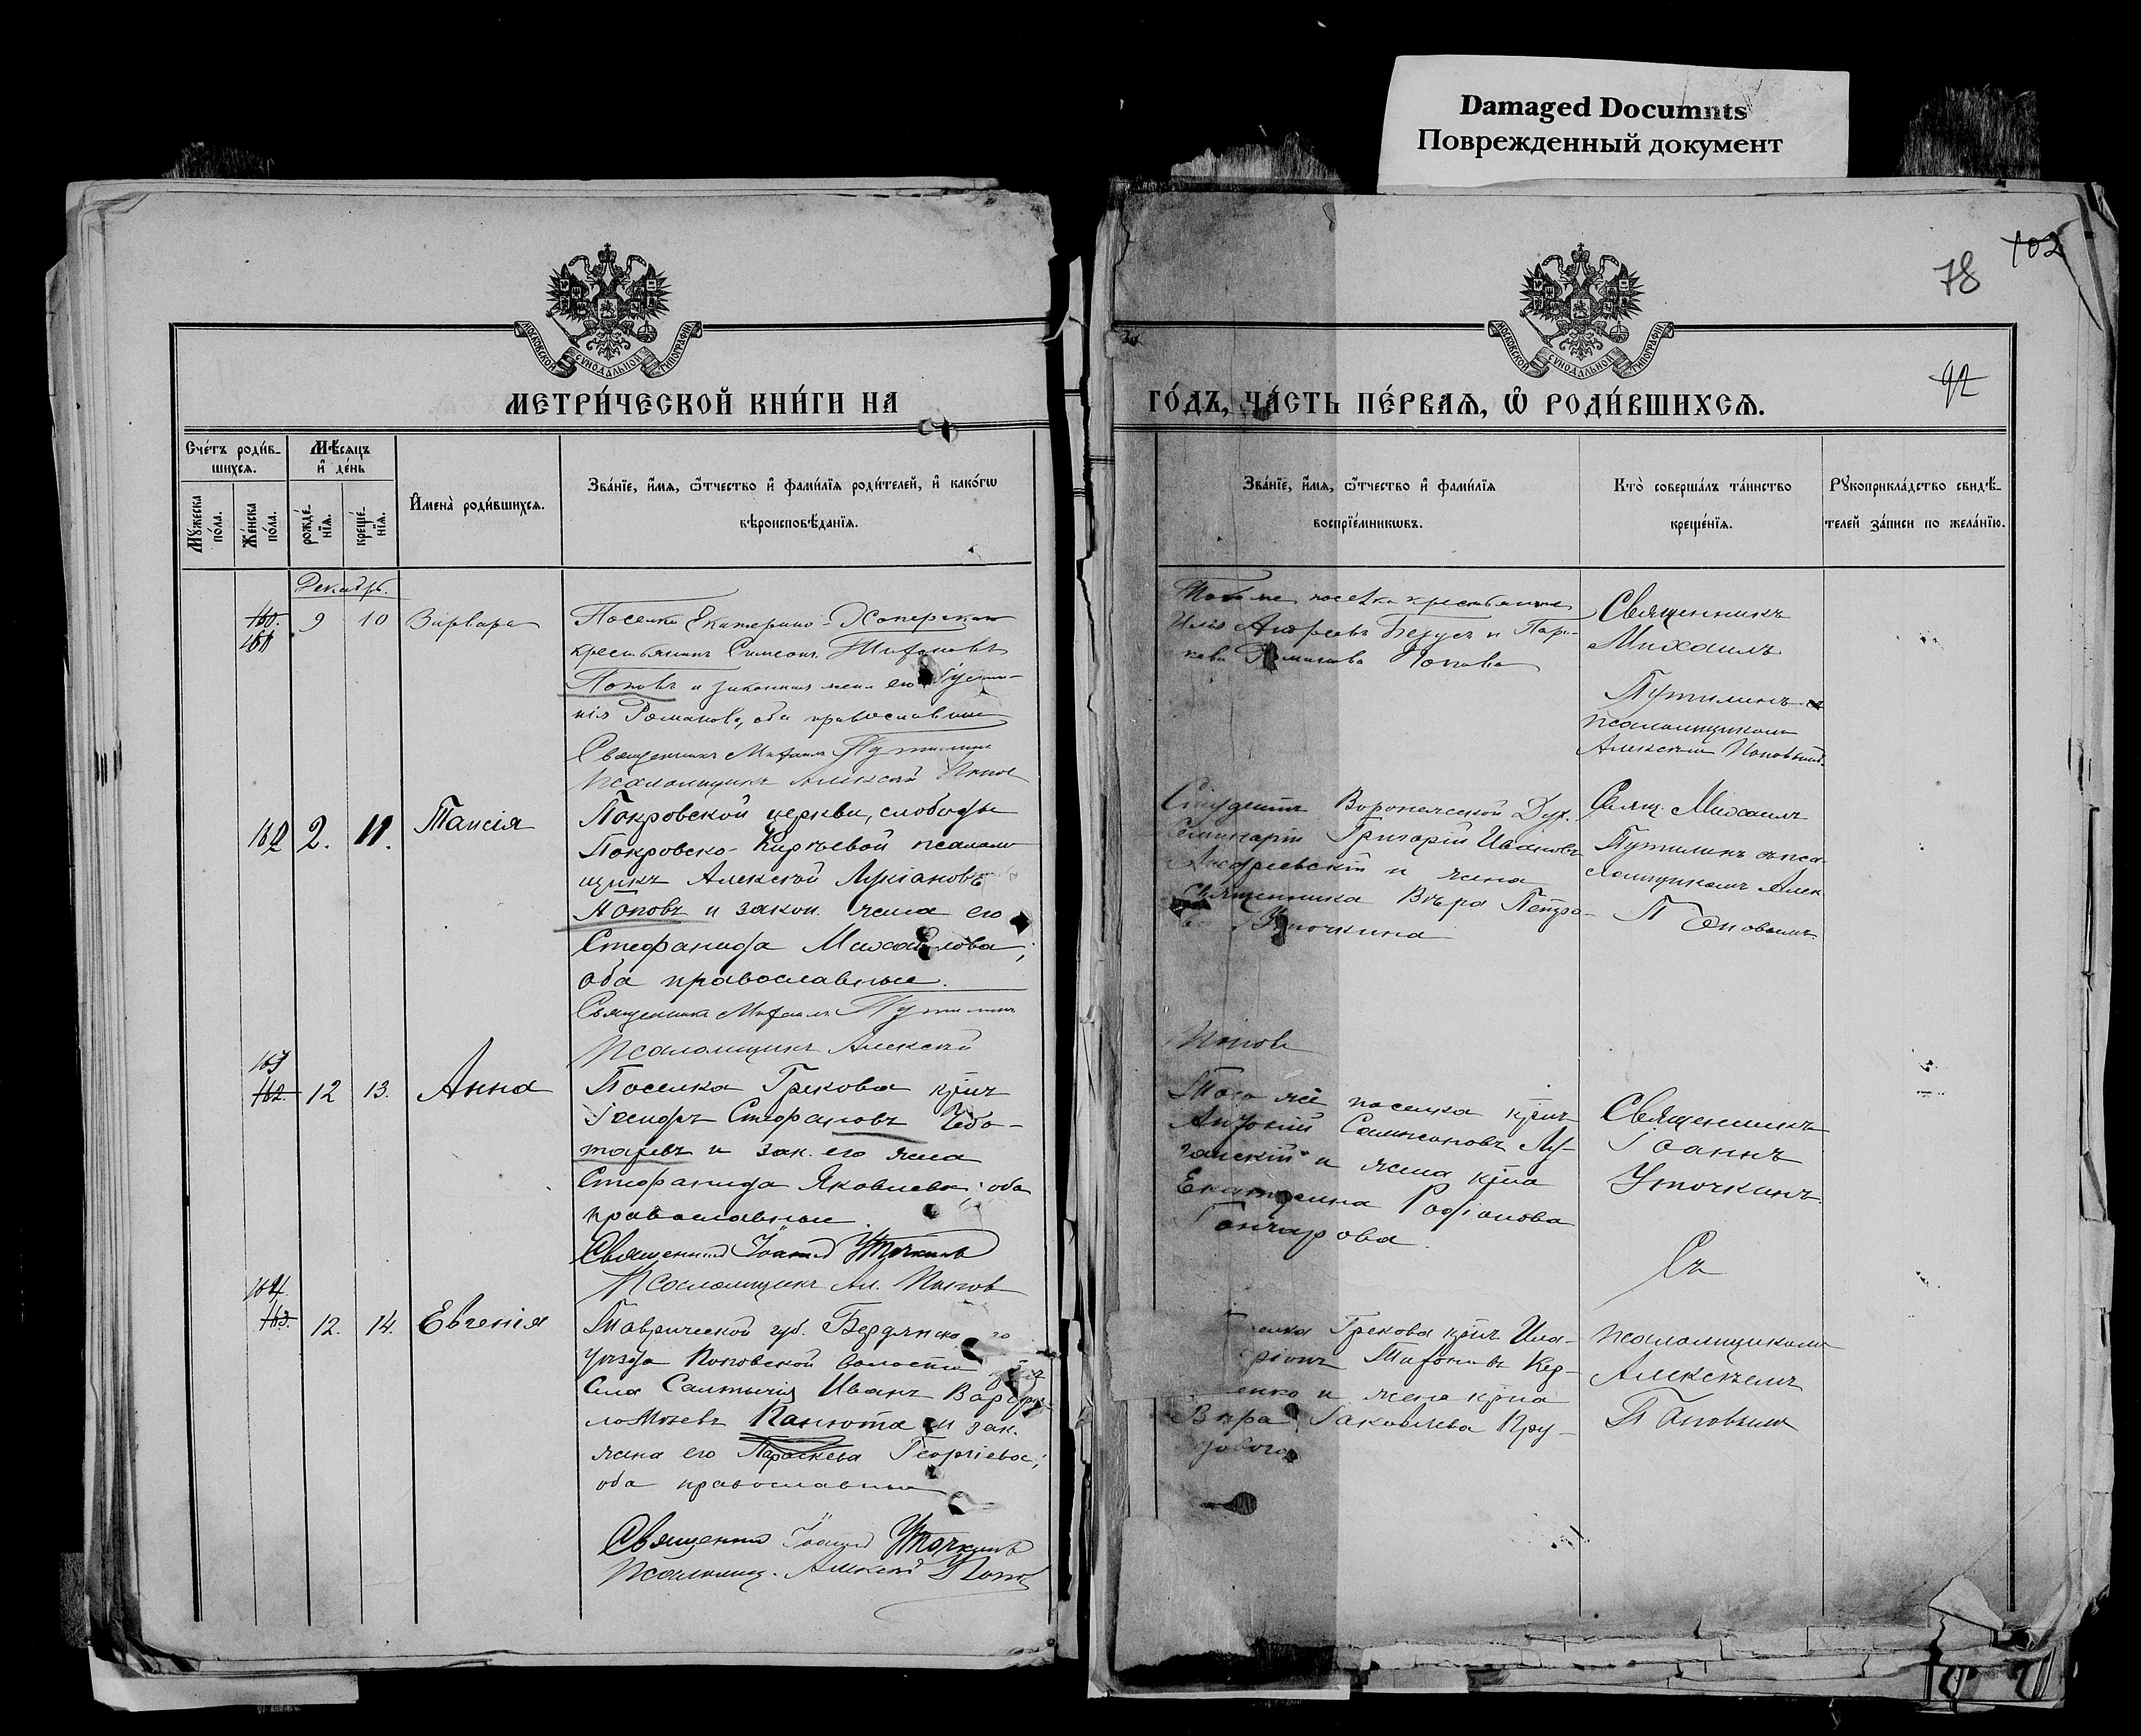 Damaged Documnts
Поврежденный документ
78
102
92
МОСКОВСКОЙ СѴНОДАЛЬНОЙ ТИПОГРАФІИ
МЕТРИ́ЧЕСКОЙ КНИ́ГИ НА
Сче́тъ роди́в-
шихсѧ.
Мѣ́сѧцъ
и҆ де́нь
Мꙋ́жеска
по́ла.
Же́нска
по́ла.
рожде́-
нїѧ.
креще́-
нїѧ.
И҆мена̀ роди́вшихсѧ.
Зва́нїе, и҆́мѧ, ѻ҆́тчество и҆ фами́лїѧ роди́телей, и҆ како́гѡ
вѣроисповѣ́данїѧ.
Декабрь.
160.
9
10
Варвара
Поселка Екатерино-Хоперскаго
крестьянинъ Симеонъ
Поповъ и законная жена его
нія Романова, оба православные
Священникъ Михаилъ Путилинъ
Псаломщикъ Алексій Попов
162
2.
11.
Таисія
Покровской церкви, слободы
Покровско-Киреевой псалом
щикъ Алексѣй Лукіановъ
Поповъ и закон. жена его
Стефанида Михайлова;
оба православные.
Священникъ Михаилъ Путилинъ
Псаломщикъ Алексѣй
163
162.
12
13.
Анна
Поселка Грекова кр̃нъ
Іосифъ Стефановъ Чебо-
таревъ и зак. его жена
Стефанида Яковлева; оба
православные
Священникъ Іоаннъ Уточкинъ
Псаломщикъ Ал. Попов
164.
163.
12.
14.
Евгенія
Таврической губ. Бердянскаго
уѣзда Поповской волости
села Салтычія Иванъ Варфо-
ломѣевъ Панюта и зак.
жена его Параскева Георгіева;
оба православные
Священникъ Іоаннъ Уточкинъ
Псаломщ. Алексѣй Попов
МОСКОВСКОЙ СѴНОДАЛЬНОЙ ТИПОГРАФІИ
ГО́ДЪ, ЧА́СТЬ ПЕ́РВАѦ, Ѡ҆ РОДИ́ВШИХСѦ.
Зва́нїе, и҆́мѧ, ѻ҆́тчество и҆ фами́лїѧ
воспрїе́мникѡвъ.
Кто̀ соверша́лъ та́инство
креще́нїѧ.
Рꙋкоприкла́дство свидѣ́-
телей за́писи по жела́нїю.
поселка крестьяне
Илія Андреевъ Безусъ и Пара-
кева Романова Попова
Священникъ
Михаилъ
Путилинъ съ
псаломщикомъ
Алексѣемъ Поповымъ.
Студентъ Воронежской Дух.
Семинаріи Григорій Ивановъ
Андреевскій и жена
священника Вѣра Петро-
Уточкина
Свящ. Михаилъ
Путилинъ съ пса
ломщикомъ Алек.
Поповымъ.
Попов
Того же поселка кр̃нъ
Антоній Самсоновъ Лу-
ганскій и жена кр̃на
Екатерина Родіонова
Гончарова.
Священникъ
Іоаннъ
Уточкинъ.
Съ
Грекова кр̃нъ Ила-
ріонъ
енко и жена кр̃на
Вѣра Іаковлева Пру-
псаломщикомъ
Алексѣемъ
Поповымъ